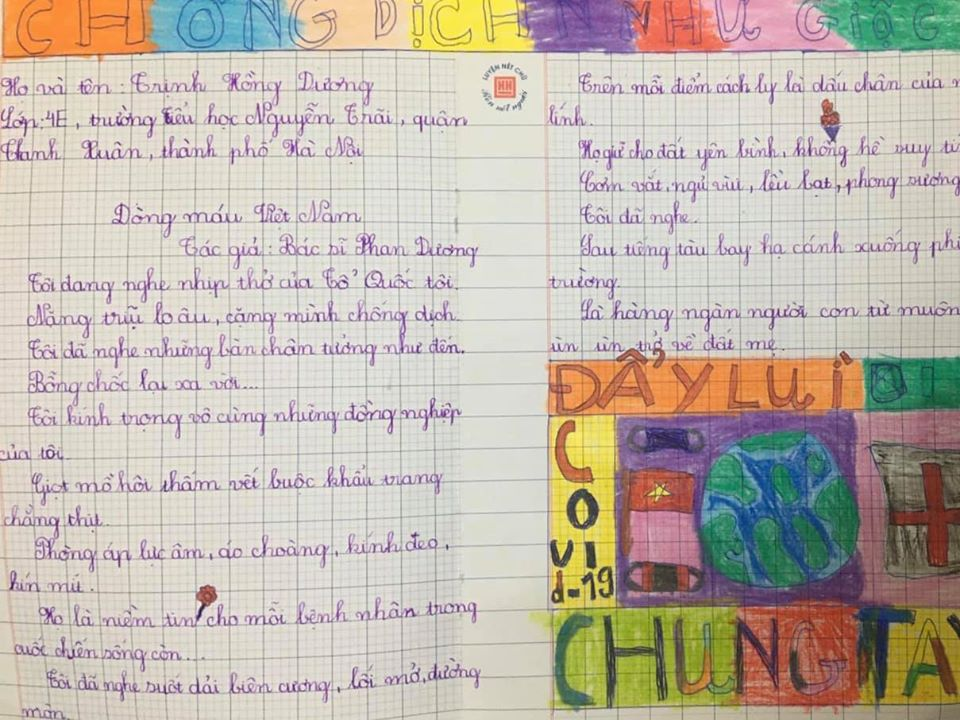 CHỐNG DỊCH NHƯ GIẶC
Họ và tên: Trịnh Hồng Dương
Lớp: 4E, trường tiểu học Nguyễn Trãi, quận
Thanh Xuân, thành phố Hà Nội
Dòng máu Việt Nam
Tác giả: Bác sĩ Phan Dương
Tôi đang nghe nhịp thở của Tổ Quốc tôi.
Nặng trĩu lo âu, cặng mình chống dịch.
Tôi đã nghe những bàn chân tưởng như đến.
Bỗng chốc lại xa vời...
Tôi kính trọng vô cùng những đồng nghiệp
của tôi.
Giọt mồ hôi thấm vết buộc khẩu trang
chẳng thịt.
Phòng áp lực âm, áo choàng, kính đeo,
kín mít.
Họ là niềm tin cho mỗi bệnh nhân trong
cuộc chiến sống còn...
Tôi đã nghe suốt dải biên cương, lối mở, đường
mòn.
LUYỆN NÉT CHỮ
HH
Rèn nết người
Trên mỗi điểm cách ly là dấu chân của
lính.
Họ giữ cho đất yên bình, không hề suy
Cơm vắt, ngủ vùi, lều bạt, phong sương
Tôi đã nghe.
Sau tiếng tàu bay hạ cánh xuống phi
trường.
Là hàng ngàn người con từ muôn
ùn ùn trở về đất mẹ.
ĐẨY LUI DI
Covid-19
CHUNG TAY